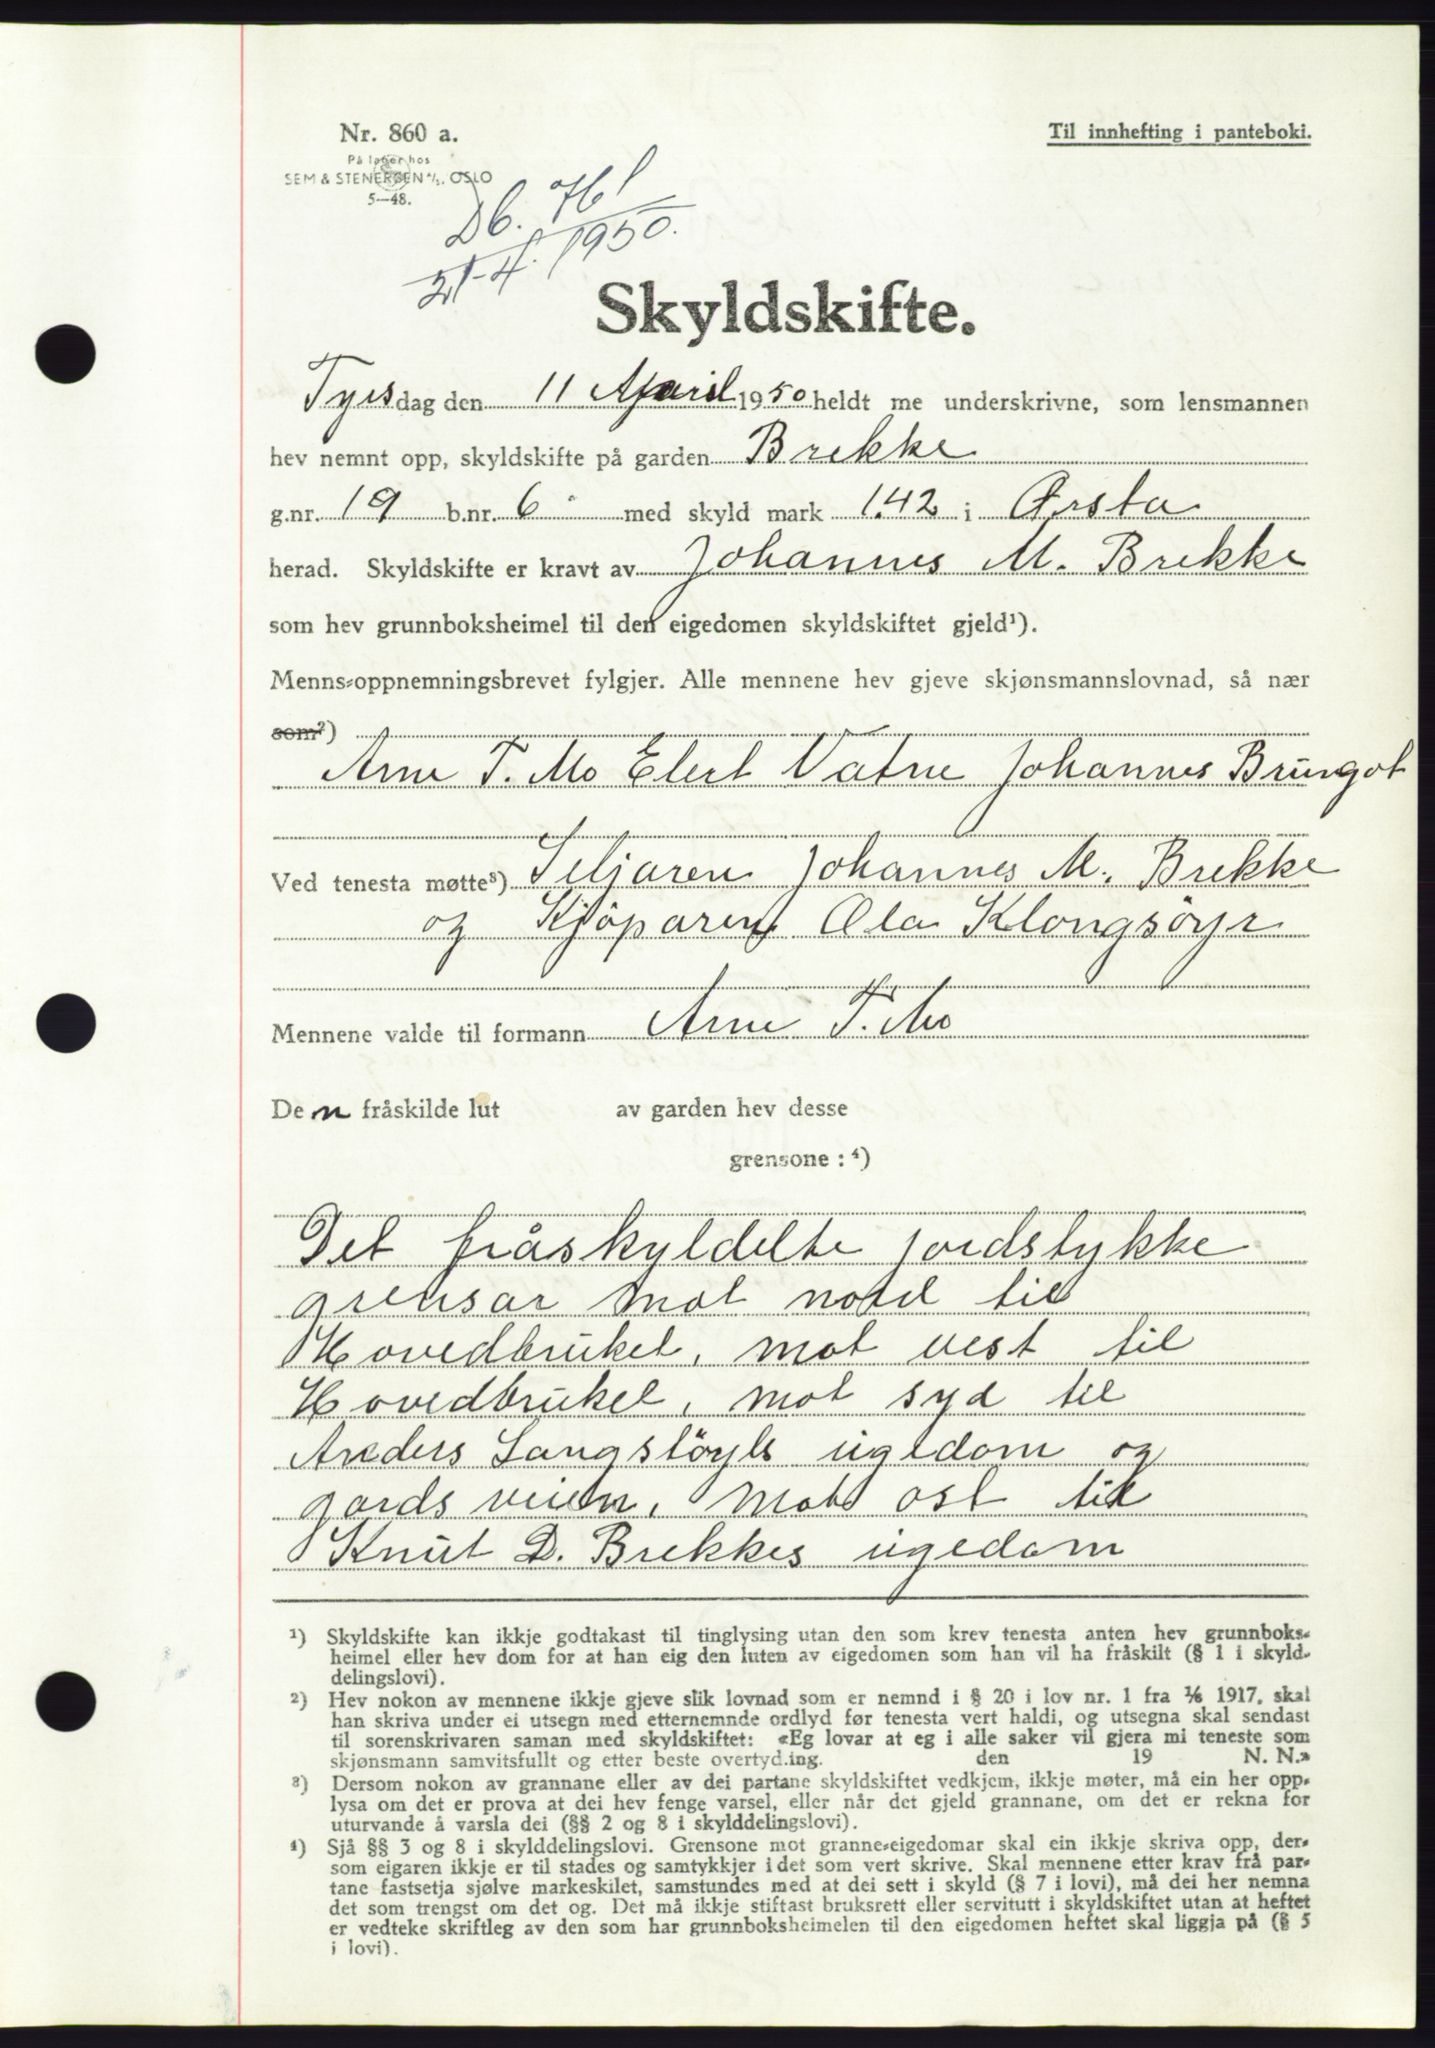 Nr. 860 a.
På lager hos
SEM & STENERSEN A/S, OSLO
5—48.
Til innhefting i panteboki.
Db. 761
21-4. 1950.
Skyldskifte.
Tysdag den 11 April 1950 heldt me underskrivne, som lensmannen
hev nemnt opp, skyldskifte på garden Brekke
g.nr. 19 b.nr. 6 med skyld mark 1.42 i Ørsta
herad. Skyldskifte er kravt av Johannes M. Brekke
som hev grunnboksheimel til den eigedomen skyldskiftet gjeld¹).
Menns-oppnemningsbrevet fylgjer. Alle mennene hev gjeve skjønsmannslovnad, så nær
som²)
Arne T. Mo Elert Vatne Johannes Brungot
Ved tenesta møtte³) Seljaren Johannes M. Brekke
og Kjöparen Ola Klongsöyr
Mennene valde til formann Arne T. Mo
Den fråskilde lut av garden hev desse
grensone : ⁴)
Det fråskyldelte jordstykke
grensar mot nord til
Hovedbruket, mot vest til
Hovedbruket, mot syd til
Anders Langslöyls eigedom og
gardsveien, mot ost til
Knut D. Brekkes eigedom
¹) Skyldskifte kan ikkje godtakast til tinglysing utan den som krev tenesta anten hev grunnboks-
heimel eller hev dom for at han eig den luten av eigedomen som han vil ha fråskilt (§ 1 i skyld-
delingslovi).
²) Hev nokon av mennene ikkje gjeve slik lovnad som er nemnd i § 20 i lov nr. 1 fra 1/6 1917, skal
han skriva under ei utsegn med etternemnde ordlyd før tenesta vert haldi, og utsegna skal sendast
til sorenskrivaren saman med skyldskiftet: «Eg lovar at eg i alle saker vil gjera mi teneste som
skjønsmann samvitsfullt og etter beste overtyding. den 19 N. N.»
³) Dersom nokon av grannane eller av dei partane skyldskiftet vedkjem, ikkje møter, må ein her opp-
lysa om det er prova at dei hev fenge varsel, eller når det gjeld grannane, om det er rekna for
uturvande å varsla dei (§§ 2 og 8 i skylddelingslovi).
⁴) Sjå §§ 3 og 8 i skylddelingslovi. Grensone mot granne-eigedomar skal ein ikkje skriva opp, der-
som eigaren ikkje er til stades og samtykkjer i det som vert skrive. Skal mennene etter krav frå par-
tane fastsetja sjølve markeskilet, samstundes med at dei sett i skyld (§ 7 i lovi), må dei her nemna
det som trengst om det og. Det må ikkje stiftast bruksrett eller servitutt i skyldskiftet utan at heftet
er vedteke skriftleg av den som har grunnboksheimelen til den eigedomen heftet skal liggja på (§ 5
i lovi).